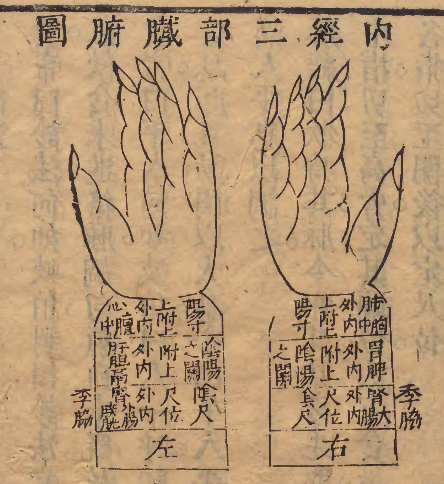 內經三部臟腑圖
肺胸中
外內
上附上
陽寸
胃脾
外內
附上
陰陽
之關
腎大腸
外內
尺位
陰尺
季脇
右
陽寸
上附上
外內
心膻中
陰陽
之關
附上
外內
肝膽鬲
陰尺
尺位
外內
季脇
左